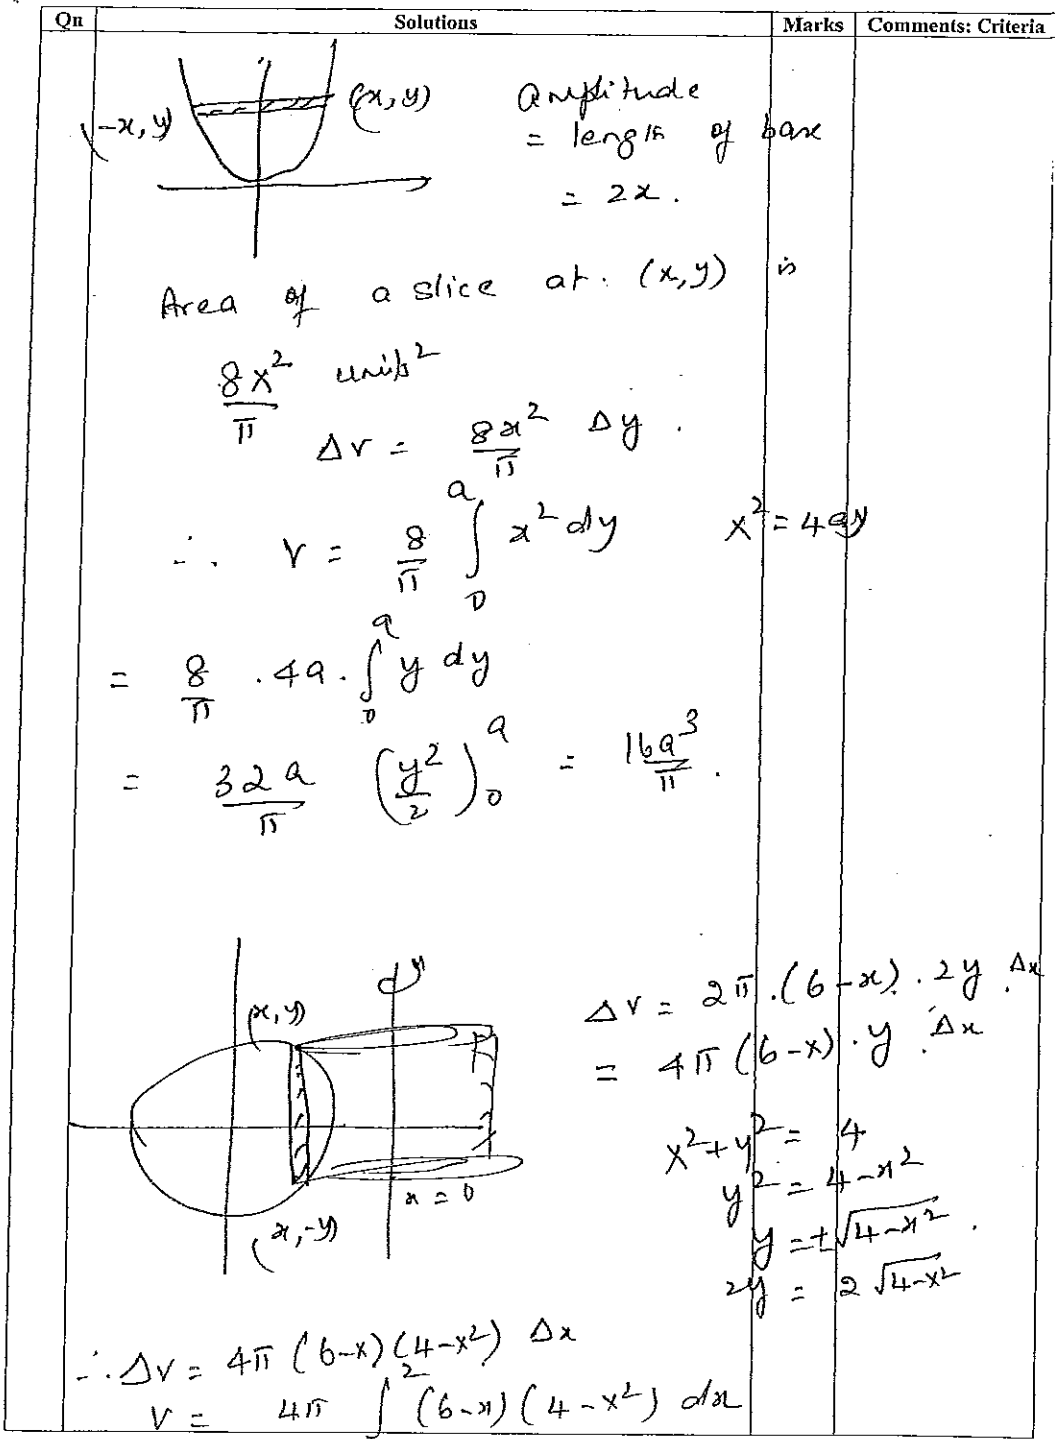 Qn Solutions Marks Comments: Criteria
(-x, y) (x, y)
amplitude
= length of base
= 2x.
Area of a slice at. (x, y) is
8x²/π units²
ΔV = 8x²/π Δy.
∴ V = 8/π ∫₀ᵃ x² dy x² = 4ay
= 8/π . 4a . ∫₀ᵃ y dy
= 32a/π (y²/2)₀ᵃ = 16a³/π.
(x, y)
x = 6
(x, -y)
ΔV = 2π.(6-x). 2y .Δx
= 4π (6-x) . y .Δx
x² + y² = 4
y² = 4-x²
y = ±√4-x² .
2y = 2 √4-x²
∴ ΔV = 4π (6-x) (4-x²) Δx
V = 4π ∫² (6-x) (4-x²) dx